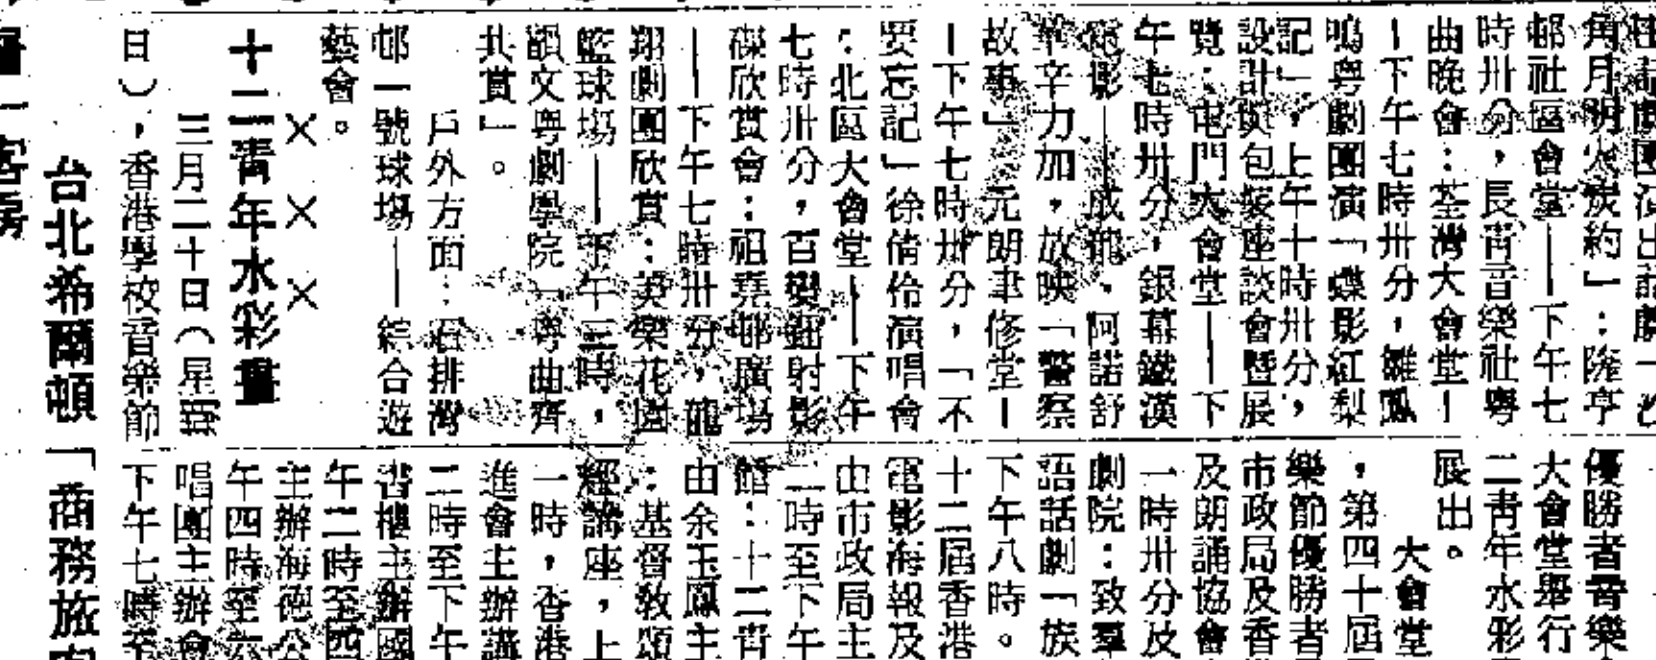 角月明火炭約」：隆亨
邨社區會堂——下午七
時卅分，長青音樂社粵
曲晚會：荃灣大會堂—
—下午七時卅分，雛鳳
鳴粵劇團演「蝶影紅梨
記」，上午十時卅分，
設計與包裝座談會暨展
覽：屯門大會堂——下
午七時卅分，銀幕鐵漢
電影——成龍．阿諾舒
辛力加，放映「警察
故事」元朗聿修堂—
—下午七時卅分，「不
要忘記」徐倩伶演唱會
：北區大會堂——下午
七時卅分，百變鐳射影
碟欣賞會：祖堯邨廣場
——下午七時卅分，龍
翔劇團欣賞：美樂花園
籃球場——下午三時，
韻文粵劇學院「粵曲齊
共賞」。
戶外方面：石排灣
邨一號球場——綜合遊
藝會。
× × ×
十二青年水彩畫
三月二十日（星
日），香港學校音樂節
台北希爾頓「商務旅
優勝者音樂
大會堂舉行
二青年水彩
展出。
大會堂
，第四十屆
樂節優勝者
市政局及香
及朗誦協會
一時卅分及
劇院：致羣
語話劇「族
下午八時。
十二屆香港
電影海報及
由市政局主
二時至下午
館：十二青
由余玉鳳主
：基督教頌
經講座，上
一時，香港
進會主辦講
二時至下午
書樓主辦國
午二時至四
主辦海德公
午四時至六
唱團主辦會
下午七時至